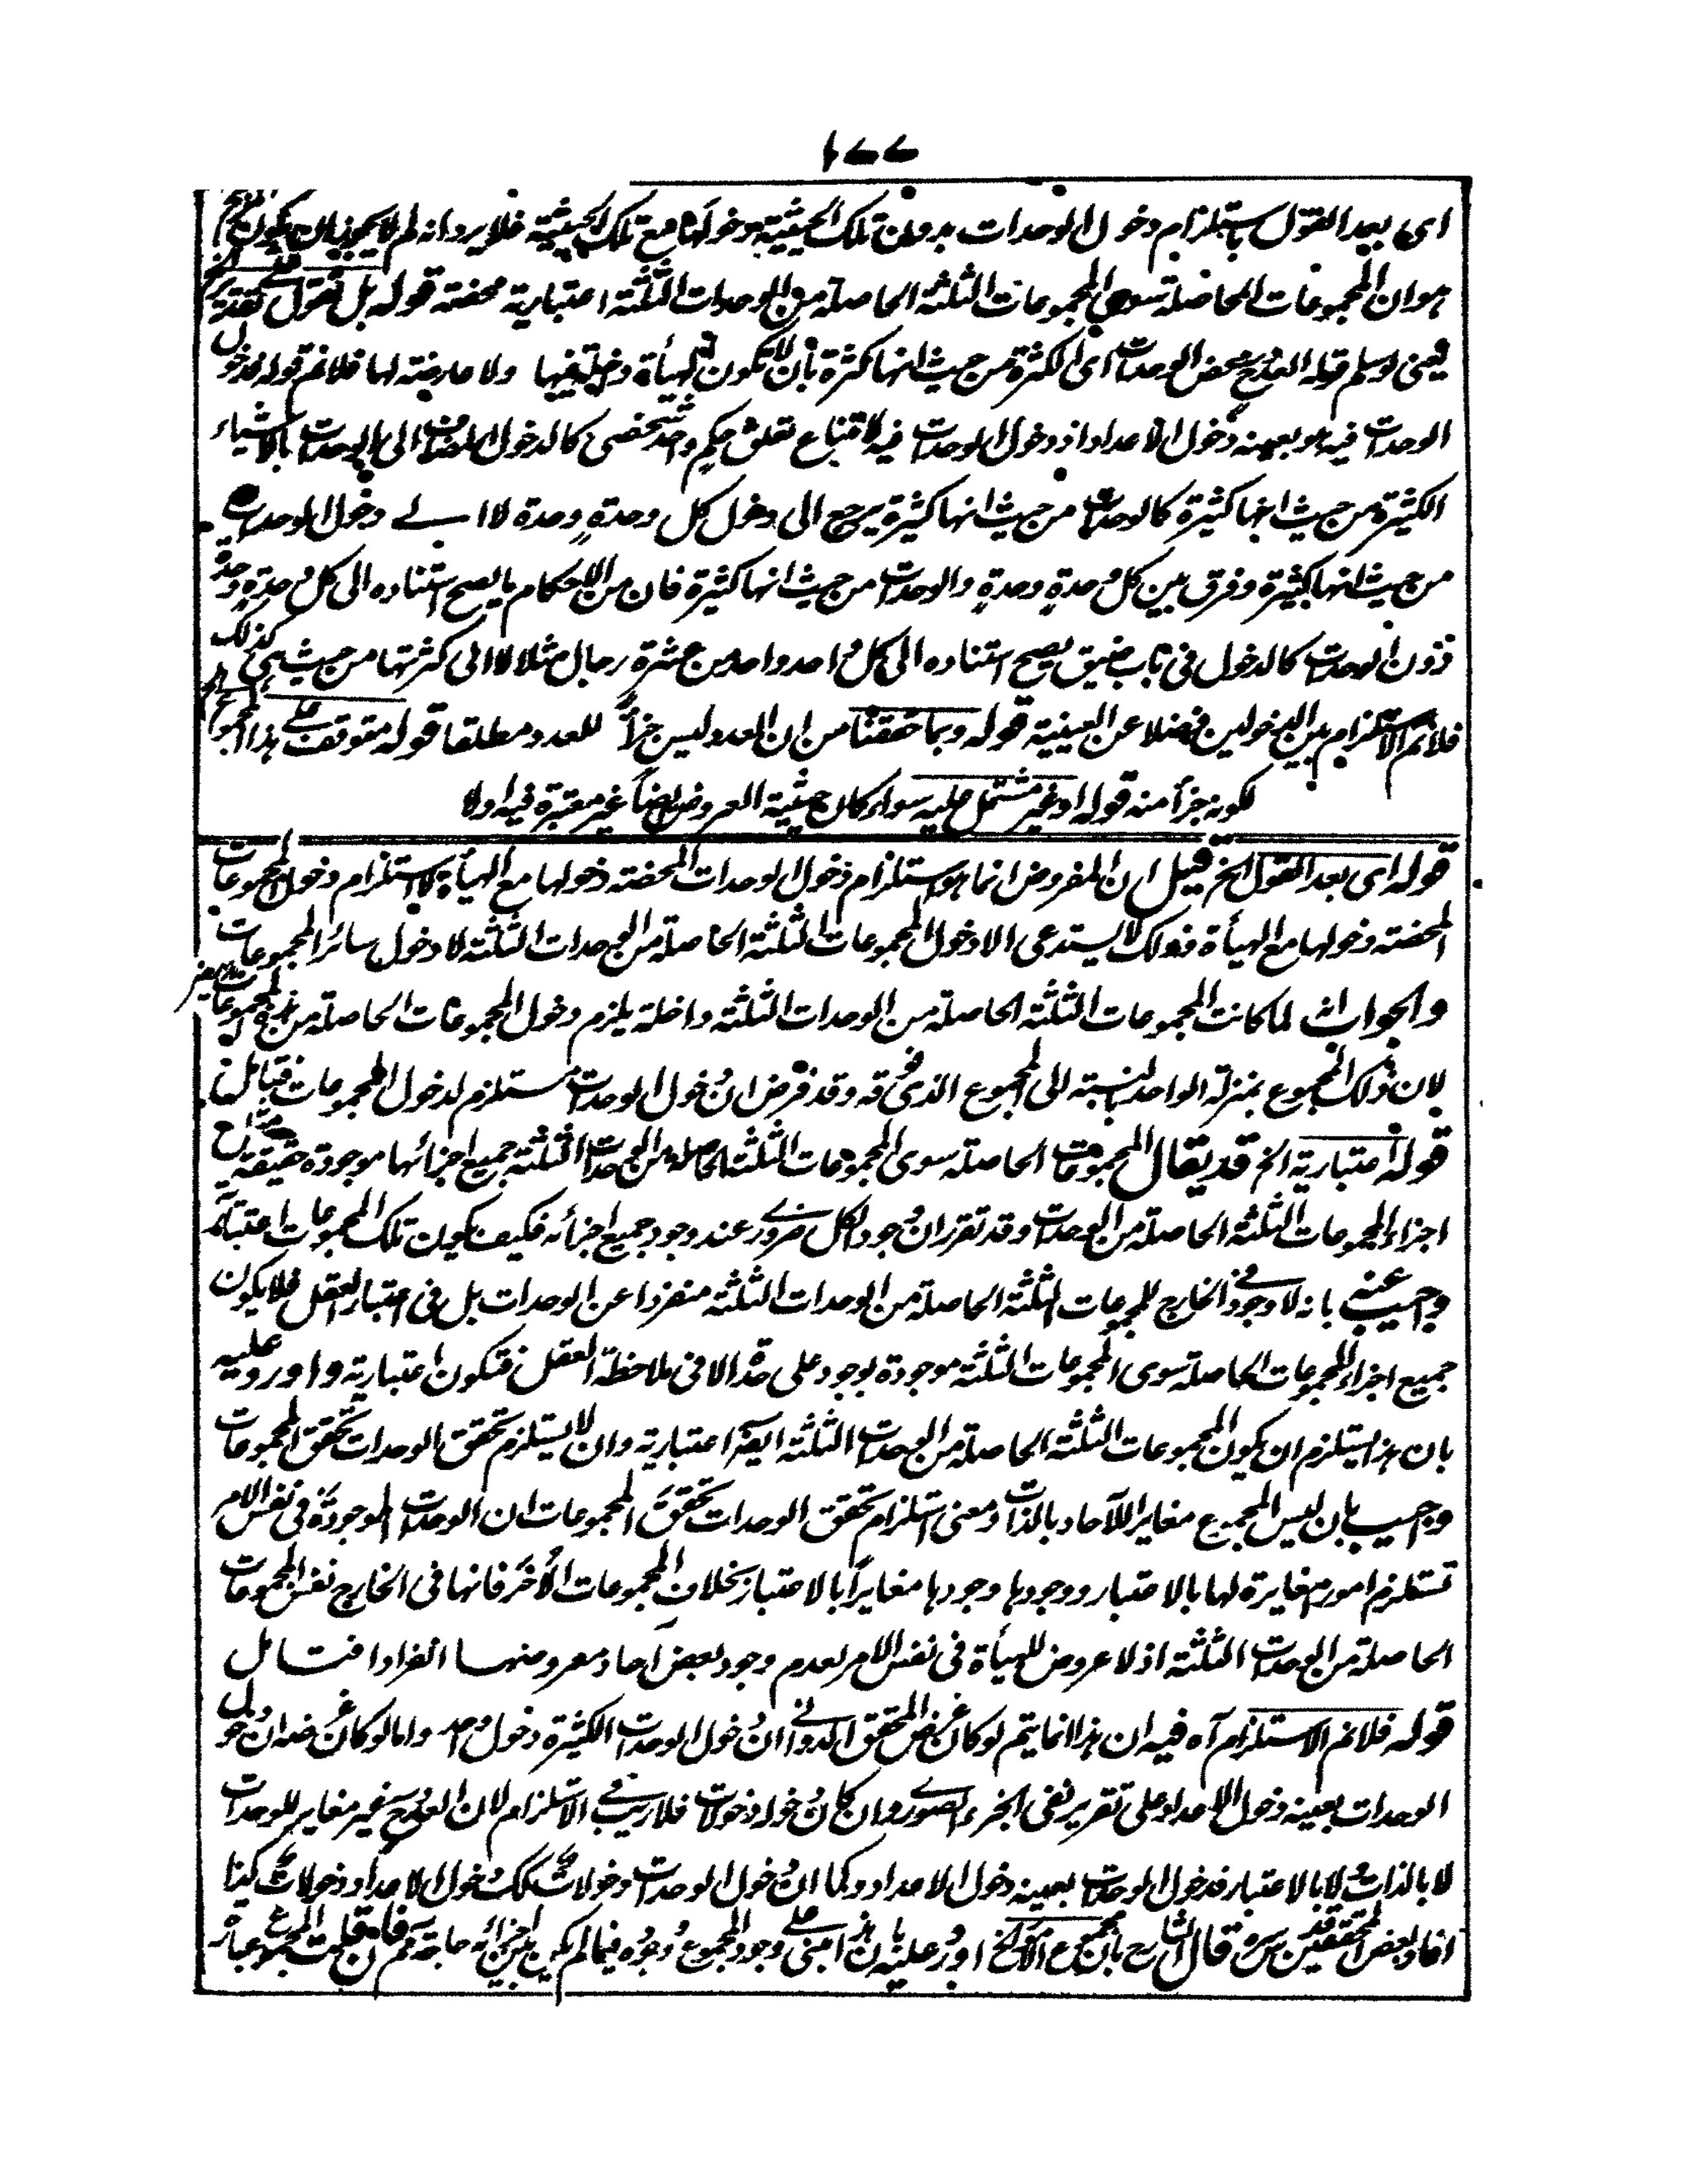 ١٧٧
اى بعد القول باستلزام دخول الوحدات بدون تلك الحيثية دخولها مع تلك الحيثية فلا يرد انه لم لا يجوز ان يكون
هو ان المجموعات الحاصلة سوى المجموعات الثلثة الحاصلة من الوحدات الثلثة اعتبارية محضة قوله بل نقول على تقدير
يعنى لو سلم قوله العدد محض الوحدات اى الكثرة من حيث انها كثرة بأن لا تكون الهيأة داخلة فيها ولا عارضة لها فلا نم قوله فدخول
الوحدات فيه هو بعينه دخول الاعداد اذ دخول الوحدات فيه لامتناع تعلق حكم واحد شخصى كالدخول المضاف الى الوحدات بالاشياء
الكثيرة من حيث انها كثيرة كالوحدات من حيث انها كثيرة يرجع الى دخول كل وحدةٍ وحدة لا الى دخول الوحدات
من حيث انها كثيرة وفرق بين كل وحدةٍ وحدةٍ والوحدات من حيث انها كثيرة فان من الاحكام ما يصح استناده الى كل وحدةٍ وحدةٍ
دون الوحدات كالدخول فى باب ضيق يصح استناده الى كل واحد واحد من عشرة رجال مثلا لا الى كثرتها من حيث هى كذلك
فلا نم الاستلزام بين الدخولين فضلا عن العينية قوله وبما حققنا من ان العدد ليس جزأً للعدد مطلقا قوله متوقف على هذا المجموع
لكونه جزأ منه قوله او غير مشتمل عليه سواء كان حيثية العروض ايضاً غير معتبرة فيه اولا
قوله اى بعد القول الخ قيل ان المفروض انما هو استلزام دخول الوحدات المحضة دخولها مع الهيأة لا استلزام دخول المجموعات
المحضة دخولها مع الهيأة وذلك لا يستدعى الا دخول المجموعات الثلثة الحاصلة من الوحدات الثلثة لا دخول سائر المجموعات
والجواب لما كانت المجموعات الثلثة الحاصلة من الوحدات الثلثة داخلة يلزم دخول المجموعات الحاصلة من هذه المجموعات
لان ذلك المجموع بمنزلة الواحد بالنسبة الى المجموع الذى فوقه وقد فرض ان دخول الوحدات مستلزم لدخول المجموعات فتأمل
قوله اعتبارية الخ قد يقال المجموعات الحاصلة سوى المجموعات الثلثة الحاصلة من الوحدات الثلثة جميع اجزائها موجودة حقيقة
اجزاء المجموعات الثلثة الحاصلة من الوحدات وقد تقرر ان وجود الكل ضرورى عند وجود جميع اجزائه فكيف يكون تلك المجموعات اعتبارية
واجيب عنه بانه لا وجود فى الخارج للمجموعات الثلثة الحاصلة من الوحدات الثلثة منفردا عن الوحدات بل فى اعتبار العقل فلا يكون
جميع اجزاء المجموعات الحاصلة سوى المجموعات الثلثة موجودة بوجود على حدة الا فى ملاحظة العقل فتكون اعتبارية واورد عليه
بان هذا يستلزم ان يكون المجموعات الثلثة الحاصلة من الوحدات الثلثة ايضا اعتبارية وان لا يستلزم تحقق الوحدات تحقق المجموعات
واجيب بان ليس المجموع مغايرا للآحاد بالذات ومعنى استلزام تحقق الوحدات تحقق المجموعات ان الوحدات الموجودة فى نفس الامر
تستلزم امورا مغايرة لها بالاعتبار ووجودها وجودها مغايراً بالاعتبار بخلاف المجموعات الأخر فانها فى الخارج نفس المجموعات
الحاصلة من الوحدات الثلثة اذ لا عروض للهيأة فى نفس الامر لعدم وجود بعض احاد معروضها انفرادا فتامل
قوله فلا نم الاستلزام آه فيه ان هذا انما يتم لو كان غرض المحقق الدوانى ان دخول الوحدات الكثيرة دخول واحد واما لو كان غرضه ان دخول
الوحدات بعينه دخول الاعداد على تقرير نفى الجزء الصورى وان كان دخولا دخولات فلا ريب فى الاستلزام لان العدد ح غير مغاير للوحدات
لا بالذات ولا بالاعتبار فدخول الوحدات بعينه دخول الاعداد وكما ان دخول الوحدات دخولات كك دخول الاعداد دخولات كذا
افاد بعض المحققين قدس سره قال الشارح بان مجموع الخ اورد عليه بان هذا مبنى على وجود المجموع وجوده فيما لم يكن بين اجزائه حاجة مم فان قلت المجموع عبارة